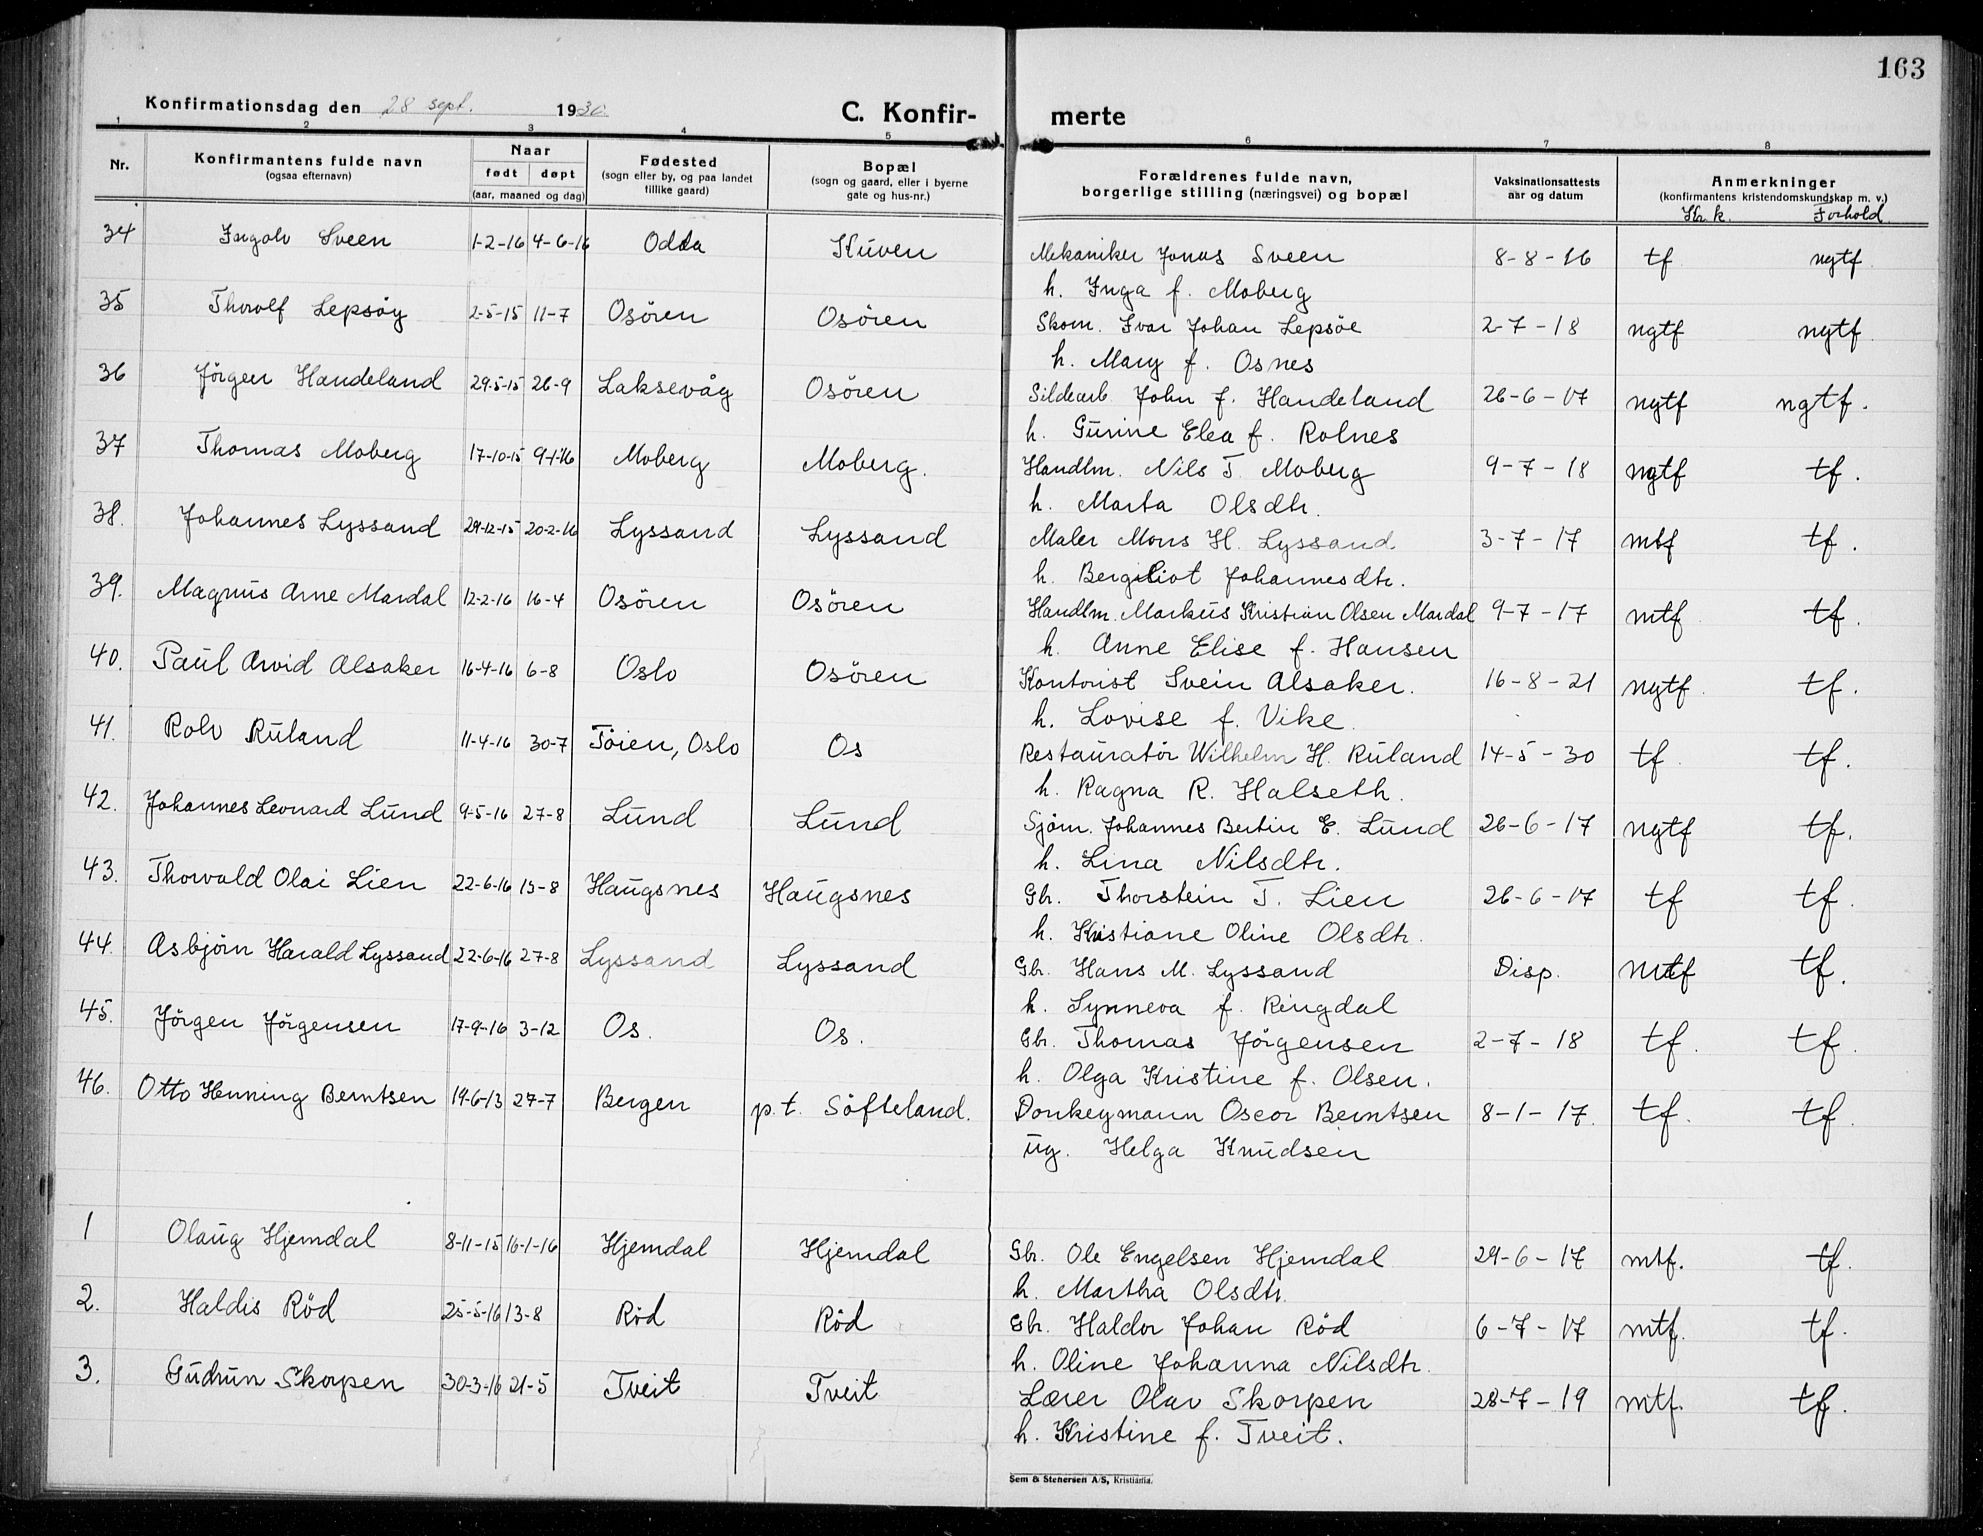 163
Konfirmationsdag den 28 sept. 1930.
C. Konfir-merte
1 2 3 4 5 6 7 8
Nr.
Konfirmantens fulde navn
(ogsaa efternavn)
Naar
født døpt
(aar, maaned og dag)
Fødested
(sogn eller by, og paa landet
tillike gaard)
Bopæl
(sogn og gaard, eller i byerne
gate og hus-nr.)
Forældrenes fulde navn,
borgerlige stilling (næringsvei) og bopæl
Vaksinationsattests
aar og datum
Anmerkninger
(konfirmantens kristendomskundskap m. v.)
Kr. k. Forhold.
34 Ingolv Sveen 1-2-16 4-6-16 Odda Kuven Mekaniker Jonas Sveen 8-8-16 tf ngtf
h. Inga f. Moberg
35 Thorolf Lepsöy 2-5-15 11-7 Osören Osören Skom. Ivar Johan Lepsöe 2-7-18 ngtf ngtf
h. Mary f. Osnes
36 Jörgen Handeland 29-5-15 26-9 Laksevåg Osören Sildearb. John f. Handeland 26-6-17 ngtf ngtf.
h. Gurine Elea f. Rolnes
37 Thomas Moberg 17-10-15 9-1-16 Moberg Moberg. Handlm. Nils T. Moberg 9-7-18 ngtf tf.
h. Marta Olsdtr.
38. Johannes Lyssand 29-12-15 20-2-16 Lyssand Lyssand Maler Mons H. Lyssand 3-7-17 mtf tf.
h. Bergliot Johannesdtr.
39. Magnus Arne Mardal 12-2-16 16-4 Osören Osören Handlm. Markus Kristian Olsen Mardal 9-7-17 mtf tf.
h. Anne Elise f. Hansen
40. Paul Arvid Alsaker 16-4-16 6-8 Oslo Osören Kontorist Svein Alsaker. 16-8-21 ngtf. tf.
h. Lovise f. Vike.
41. Rolv Ruland 11-4-16 30-7 Töien, Oslo Os Restauratör Wilhelm H. Ruland 14-5-30 tf tf.
h. Ragna R. Halseth.
42. Johannes Leonard Lund 9-5-16 27-8 Lund Lund Sjöm. Johannes Bertin E. Lund 26-6-17 ngtf tf.
h. Lina Nilsdtr.
43. Thorvald Olai Lien 22-6-16 15-8 Haugsnes Haugsnes Gbr. Thorstein T. Lien 26-6-17 tf tf.
h. Kristiane Oline Olsdtr.
44. Asbjörn Harald Lyssand 22-6-16 27-8 Lyssand Lyssand Gbr. Hans M. Lyssand Disp. mtf tf.
h. Synneva f. Ringdal
45. Jörgen Jörgensen 17-9-16 3-12 Os. Os. Gbr. Thomas Jörgensen 2-7-18 tf. tf.
h. Olga Kristine f. Olsen.
46. Otto Henning Berntsen 19-6-13 27-7 Bergen p.t. Söfteland. Donkeymann Oscar Berntsen 8-1-17. tf. tf.
ug. Helga Knudsen
1 Olaug Hjemdal 8-11-15 16-1-16 Hjemdal Hjemdal Gbr. Ole Engelsen Hjemdal 29-6-17 mtf. tf.
h. Martha Olsdtr.
2. Haldis Röd 25-5-16 13-8 Röd Röd Gbr. Haldor Johan Röd 6-7-17 mtf. tf.
h. Oline Johanna Nilsdtr.
3. Gudrun Skorpen 30-3-16 21-5 Tveit Tveit Lærer Olav Skorpen 28-7-19 mtf. tf.
h. Kristine f. Tveit.
Sem & Stenersen A/S, Kristiania.